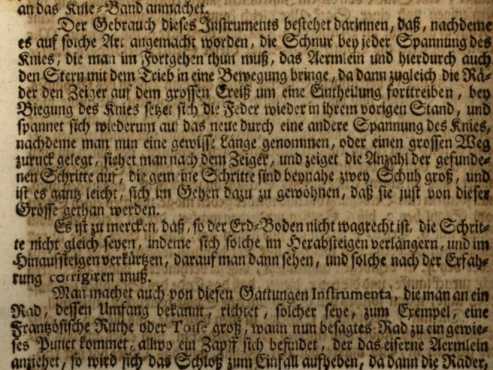 an das Knie-Band anmachet.
Der Gebrauch dieses Instruments bestehet darinnen, daß, nachdeme
es auf solche Art angemacht worden, die Schnur bey jeder Spannung des
Knies, die man im Fortgehen thun muß, das Aermlein und hierdurch auch
den Stern mit dem Trieb in eine Bewegung bringe, da dann zugleich die Rä-
der den Zeiger auf dem grossen Creiß um eine Eintheilung forttreiben, bey
Biegung des Knies setzet sich die Feder wieder in ihrem vorigen Stand, und
spannet sich wiederum auf das neue durch eine andere Spannung des Knies,
nachdeme man nun eine gewisse Länge genommen, oder einen grossen Weg
zuruck gelegt, siehet man nach dem Zeiger, und zeiget die Anzahl der gefunde-
nen Schritte auf, die gemeine Schritte sind beynahe zwey Schuh groß, und
ist es gantz leicht, sich im Gehen dazu zu gewöhnen, daß sie just von dieser
Grösse gethan werden.
Es ist zu mercken, daß, so der Erd-Boden nicht wagrecht ist, die Schrit-
te nicht gleich seyen, indeme sich solche im Herabsteigen verlängern, und im
Hinaufsteigen verkürtzen, darauf man dann sehen, und solche nach der Erfah-
rung corrigiren muß.
Man machet auch von diesen Gattungen Instrumenta, die man an ein
Rad, dessen Umfang bekannt, richtet, solcher seye, zum Exempel, eine
Frantzösische Ruthe oder Toise groß, wann nun besagtes Rad zu ein gewie-
ses Punct kommet, allwo ein Zapff sich befindet, der das eiserne Aermlein
anziehet, so wird sich das Schloß zum Einfall aufheben, da dann die Räder,